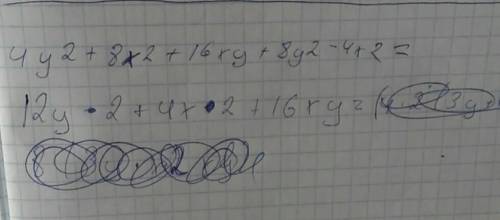 4y2+8x2+16xy+8y2-4x2=
12y•2+4x•2+16xy=(4